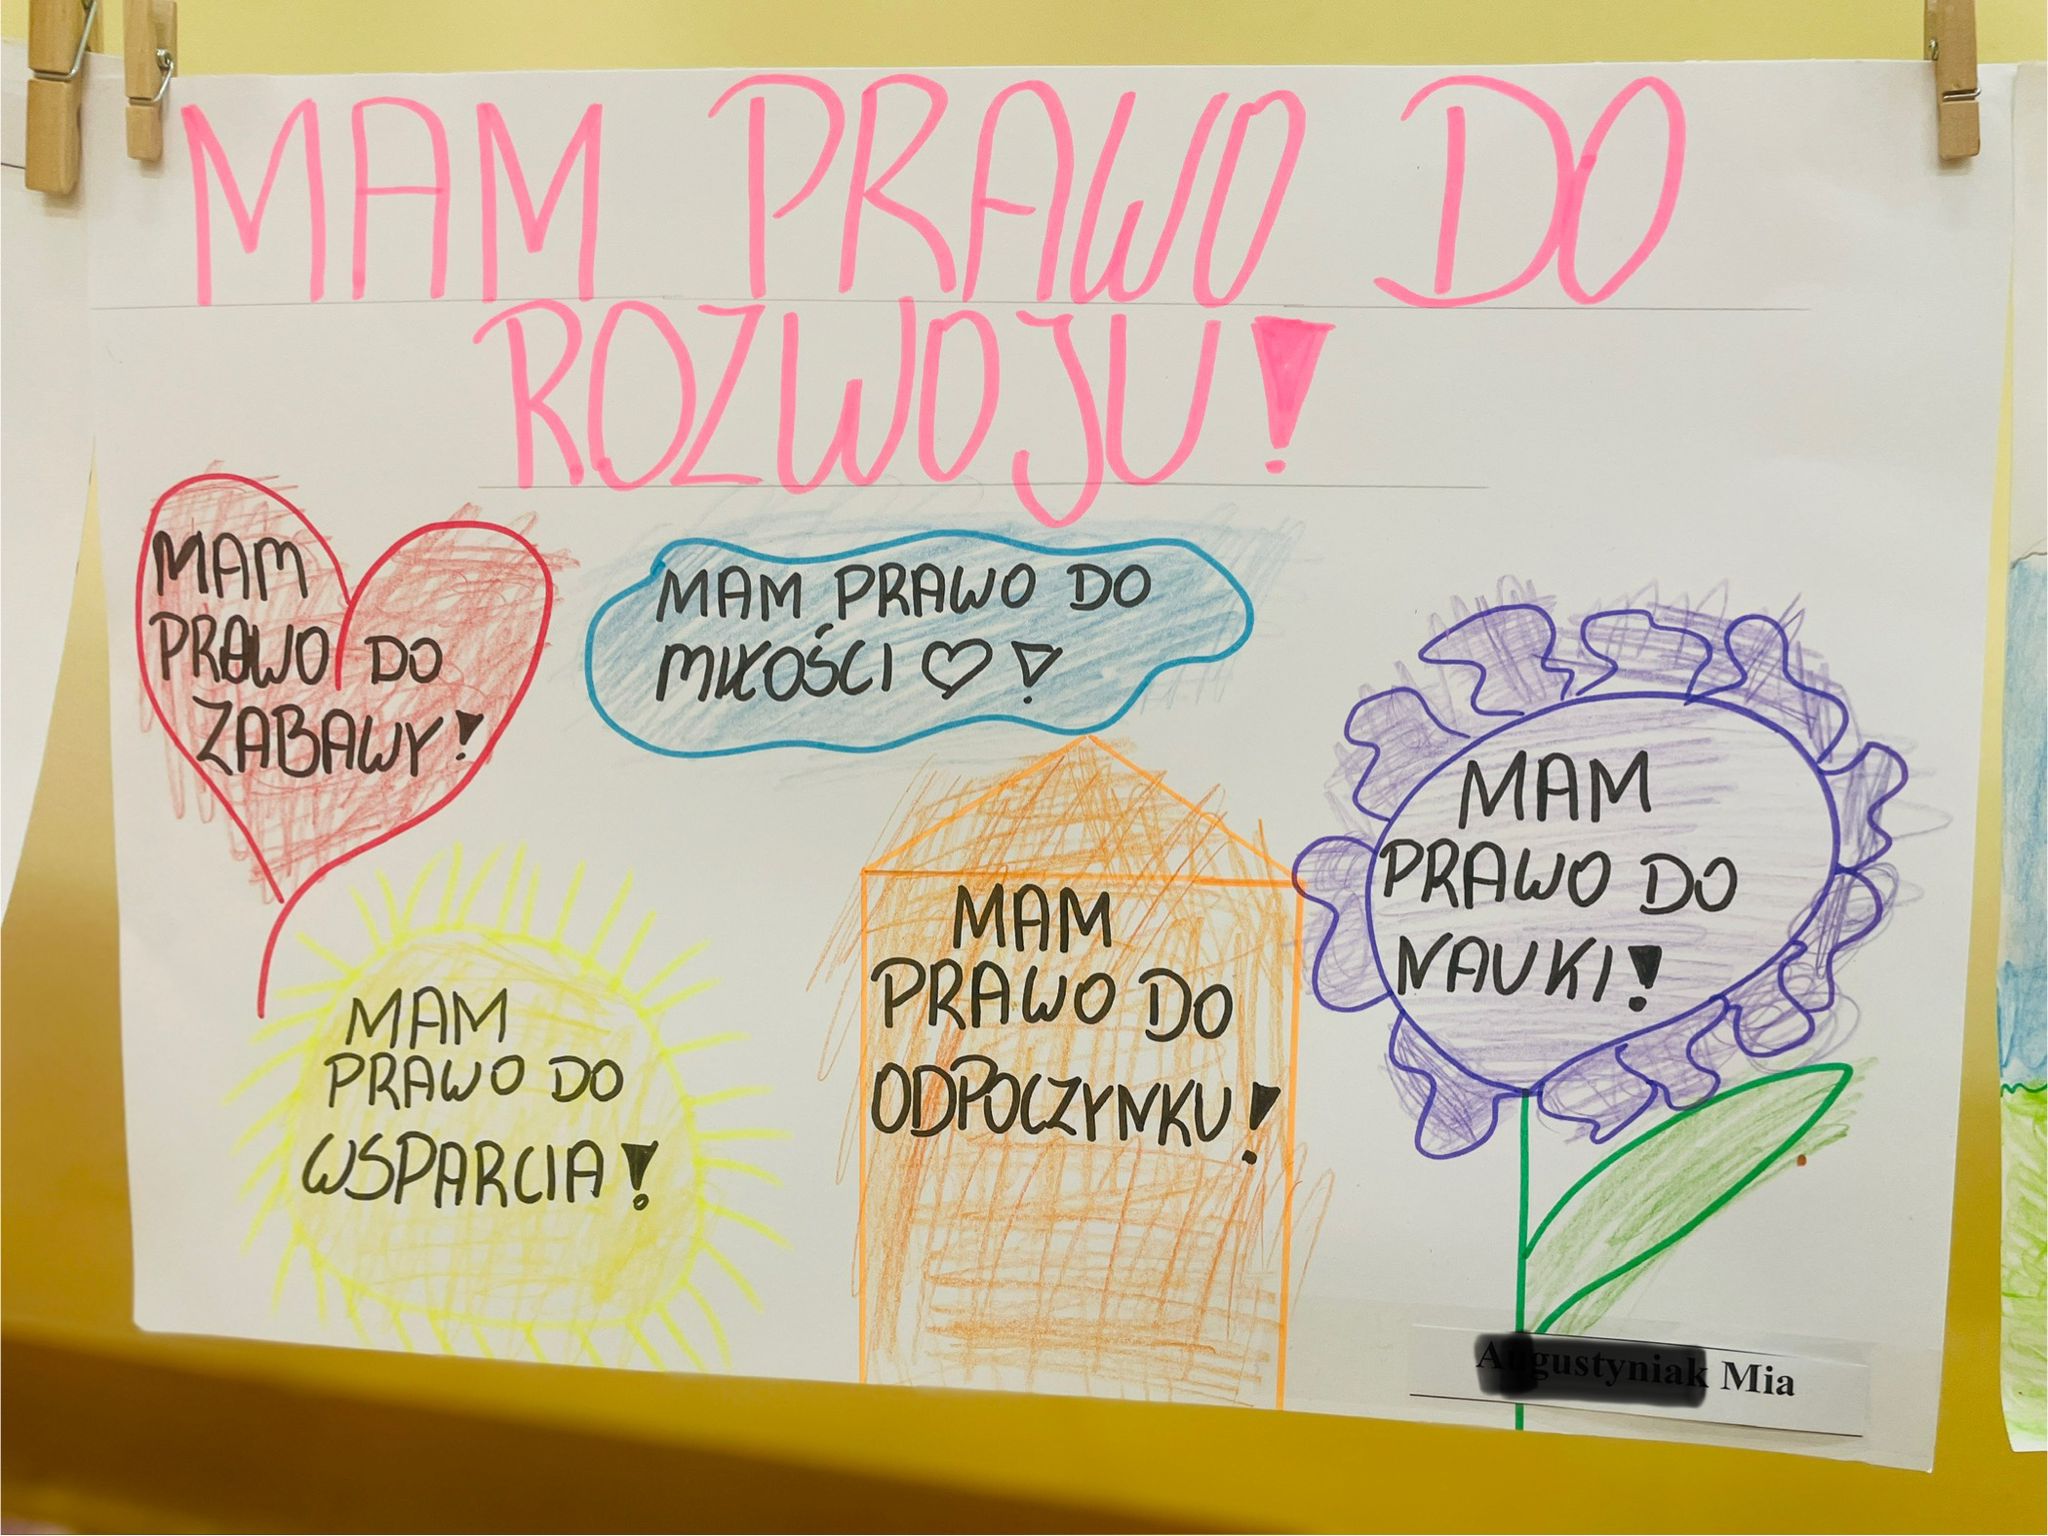 MAM PRAWO DO
ROZWOJU!
MAM
PRAWO DO
ZABAWY!
MAM PRAWO DO
MIŁOŚCI ♡!
MAM
PRAWO DO
NAUKI!
MAM
PRAWO DO
WSPARCIA!
MAM
PRAWO DO
ODPOCZYNKU!
Mia